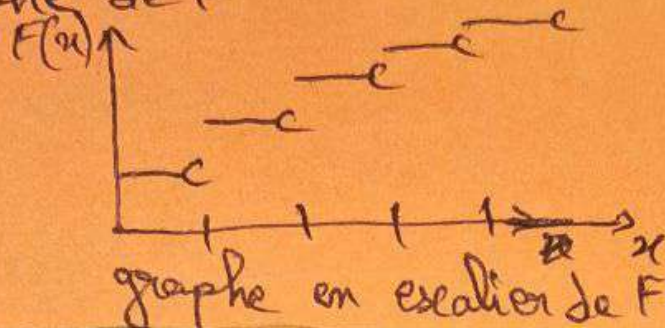 F(x)
x
graphe en escalier de F